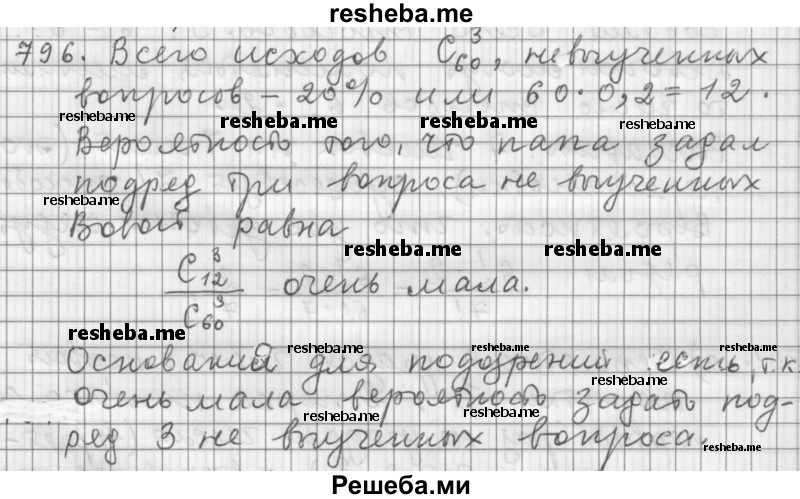 resheba.me
796. Всего исходов C₆₀³, невыученных
вопросов – 20% или 60·0,2=12.
resheba.me resheba.me resheba.me resheba.me
Вероятность того, что папа задал
подряд три вопроса не выученных
resheba.me
Вовой равна
resheba.me resheba.me
C₁₂³/C₆₀³ очень мала.
resheba.me
resheba.me resheba.me resheba.me
Оснований для подозрений есть, т.к
resheba.me
очень мала вероятность задать под-
resheba.me resheba.me
ряд 3 не выученных вопроса.
resheba.me
Решеба.ми